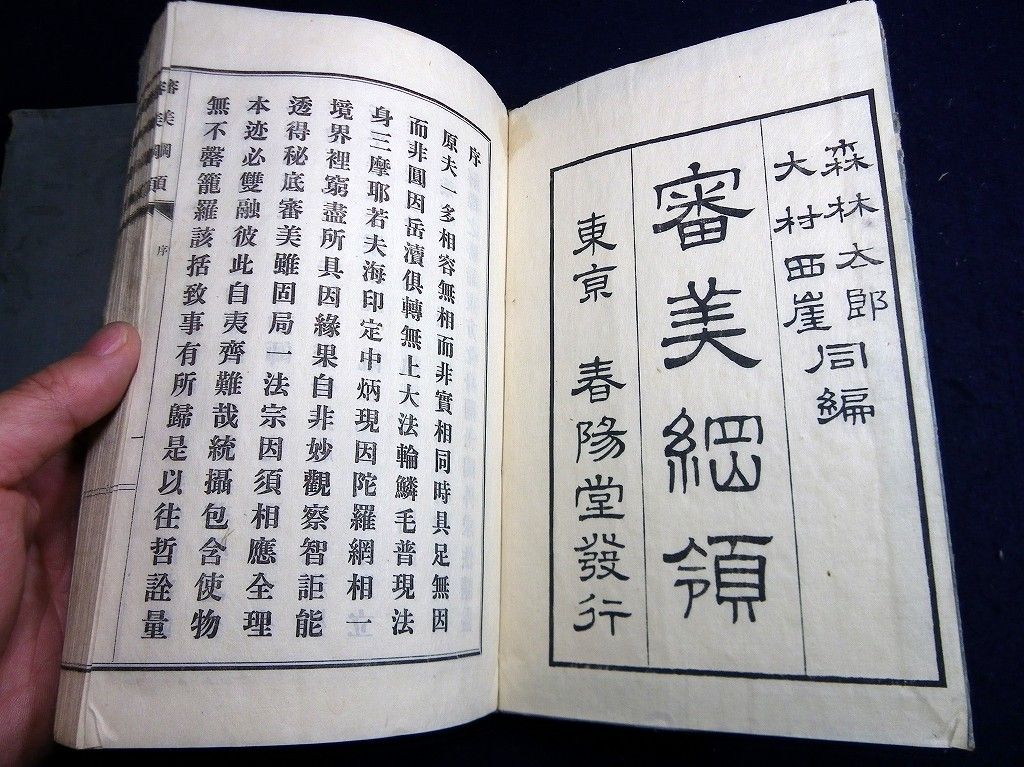 森林太郎
大村西崖同編
審美綱領
東京 春陽堂發行
序
原夫一多相容無相而非實相同時具足無因
而非圓因岳瀆俱轉無上大法輪鱗毛普現法
身三摩耶若夫海印定中炳現因陀羅網相一
境界裡窮盡所具因緣果自非妙觀察智詎能
透得秘底審美雖固局一法宗因須相應全理
本迹必雙融彼此自夷齊難哉統攝包含使物
無不罄籠羅該括致事有所歸是以往哲詮量
審美綱領
序
一